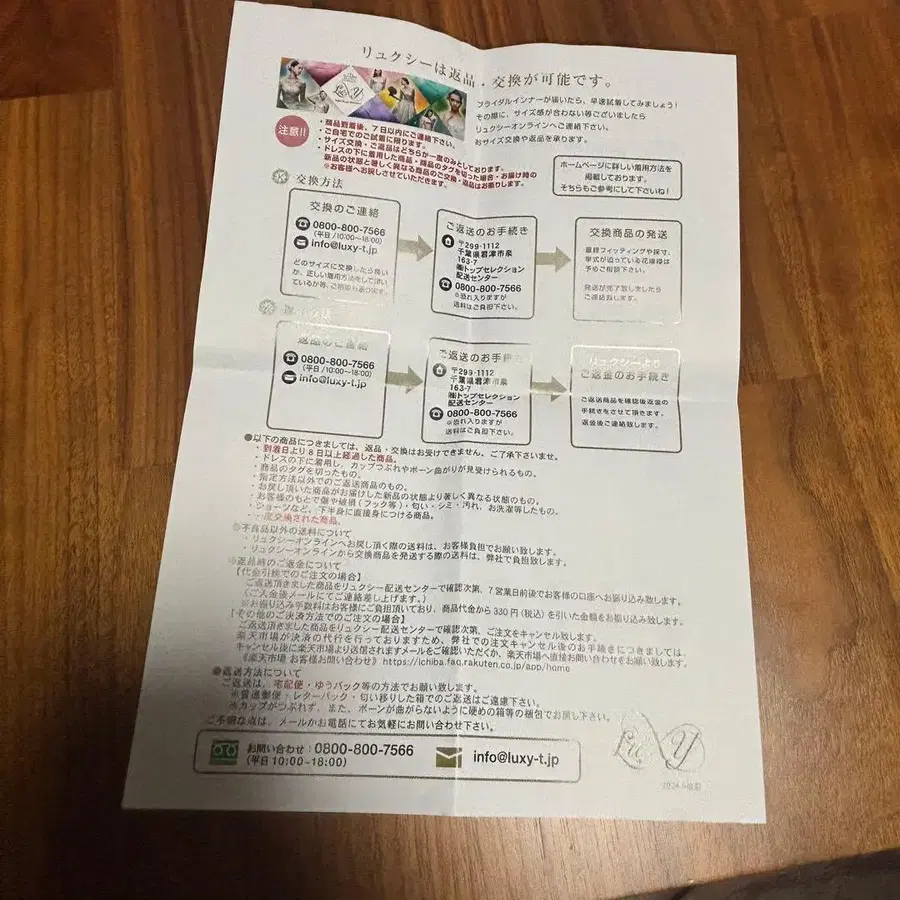 リュクシーは返品・交換が可能です。
ブライダルインナーが届いたら、早速試着してみましょう!
その際に、サイズ感が合わない等ございましたら
リュクシーオンラインへご連絡下さい。
おサイズ交換や返品を承ります。
注意!!
・商品到着後、7日以内にご連絡下さい。
・ご自宅でのご試着に限ります。
・サイズ交換・ご返品はどちらか一度のみとしております。
・ドレスの下に着用した商品・商品のタグを切った場合・お届け時の
新品の状態と著しく異なる商品のご交換・返品はお断りします。
※お客様へお戻しさせていただきます。
ホームページに詳しい着用方法を
掲載しております。
そちらもご参考にして下さいね!
交換方法
交換のご連絡
0800-800-7566
(平日/10:00~18:00)
info@luxy-t.jp
どのサイズに交換したら良い
か、正しい着用方法をして頂い
ているか等、ご相談も承ります。
ご返送のお手続き
〒299-1112
千葉県君津市泉
163-7
㈱トップセレクション
配送センター
0800-800-7566
※恐れ入りますが
送料はご負担下さい。
交換商品の発送
最終フィッティングや採寸、
挙式が迫っている花嫁様は
予めご相談下さい。
発送が完了致しましたら
ご連絡致します。
返品方法
返品のご連絡
0800-800-7566
(平日/10:00~18:00)
info@luxy-t.jp
ご返送のお手続き
〒299-1112
千葉県君津市泉
163-7
㈱トップセレクション
配送センター
0800-800-7566
※恐れ入りますが
送料はご負担下さい。
リュクシーより
ご返金のお手続き
ご返送商品を確認後返金の
手続きをさせて頂きます。
返金後ご連絡致します。
●以下の商品につきましては、返品・交換はお受けできません。ご了承下さいませ。
・到着日より8日以上経過した商品。
・ドレスの下に着用し、カップつぶれやボーン曲がりが見受けられるもの。
・商品のタグを切ったもの。
・指定方法以外でのご返送商品のもの。
・お戻し頂いた商品がお届けした新品の状態より著しく異なる状態のもの。
・お客様のもとで傷や破損(フック等)・匂い・シミ・汚れ、お洗濯等したもの。
・ショーツなど、下半身に直接身につける商品。
・一度交換された商品。
●不良品以外の送料について
・リュクシーオンラインへお戻し頂く際の送料は、お客様負担でお願い致します。
・リュクシーオンラインから交換商品を発送する際の送料は、弊社で負担致します。
●返品時のご返金について
【代金引換でのご注文の場合】
ご返送頂きました商品をリュクシー配送センターで確認次第、7営業日前後でお客様の口座へお振り込み致します。
(ご入金後メールにてご連絡差し上げます。)
※お振り込み手数料はお客様にご負担頂いており、商品代金から330円(税込)を引いた金額をお振り込み致します。
【その他のご決済方法でのご注文の場合】
ご返送頂きました商品をリュクシー配送センターで確認次第、ご注文をキャンセル致します。
楽天市場が決済の代行を行っておりますため、弊社での注文キャンセル後のお手続きにつきましては、
キャンセル後に楽天市場より送信されますメールをご確認いただくか、楽天市場へ直接お問い合わせをお願い致します。
《楽天市場 お客様お問い合わせ》https://ichiba.faq.rakuten.co.jp/app/home
●返送方法について
ご返送は、宅配便・ゆうパック等の方法でお願い致します。
※普通郵便・レターパック・匂い移りした箱でのご返送はご遠慮下さい。
※カップがつぶれず、また、ボーンが曲がらないように硬めの箱等の梱包でお戻し下さい。
ご不明な点は、メールかお電話にてお気軽にお問い合わせ下さい。
お問い合わせ:0800-800-7566
(平日10:00~18:00)
info@luxy-t.jp
LuXY